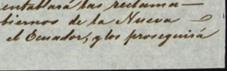 entablara las reclama-
biernos de la Nueva
el Ecuador, y los proseguirá